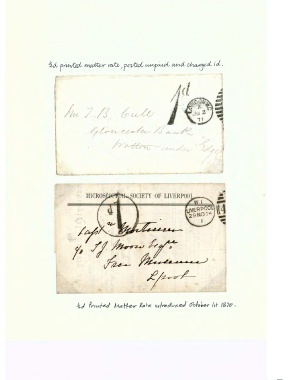 ½d printed matter rate, posted unpaid and charged 1d.
1d
Mr T. B. Cull
Gloucester Bank
Wotton-under-Edge
71
MICROSCOPICAL SOCIETY OF LIVERPOOL
LIVERPOOL
1
Capt Mortimer
c/o T J Moore Esqre
Free Museum
L'pool
½d Printed Matter Rate introduced October 1st 1870.